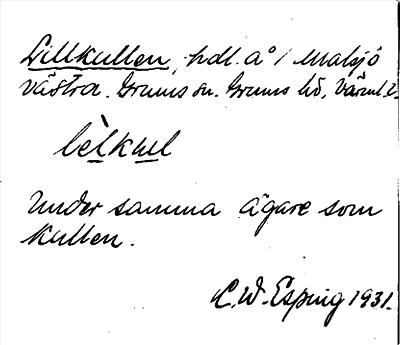 Lillkullen, hdl. å 1/ Malsjö
västra. Grums sn. Grums hd, Värml. l.
lèlkul
Under samma ägare som
Kullen.
C.W. Esping 1931.